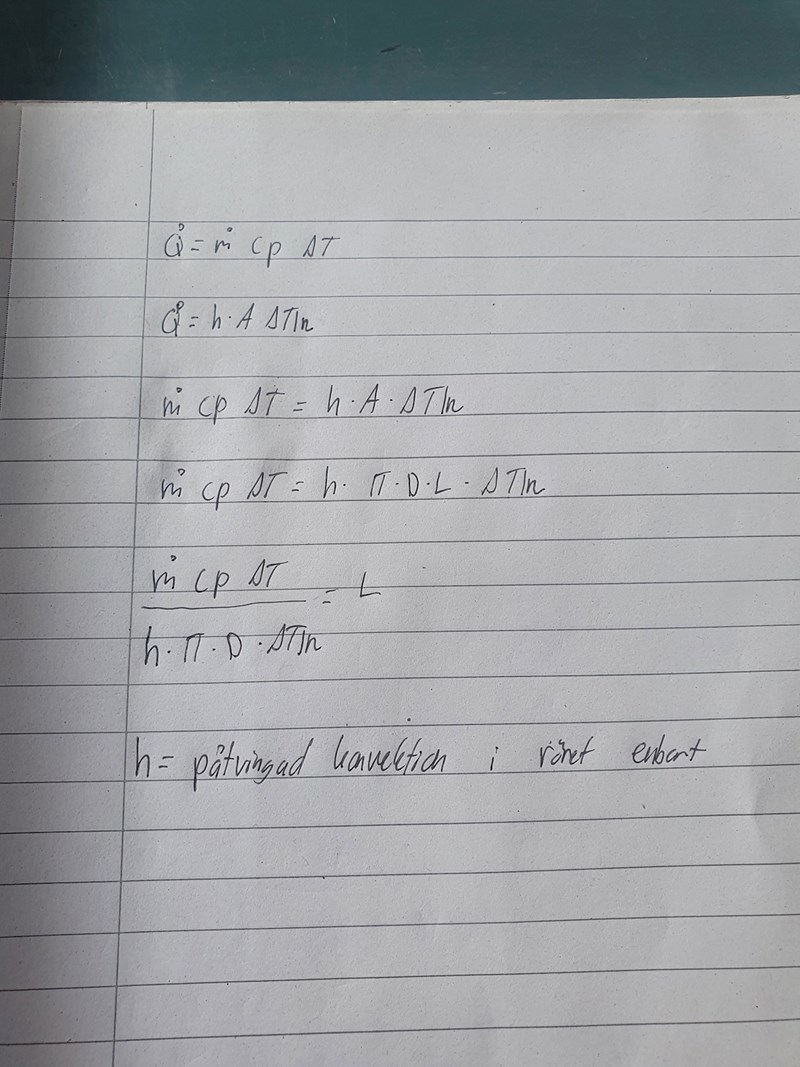 Q̇ = ṁ cp ΔT
Q̇ = h · A ΔTln
ṁ cp ΔT = h · A · ΔTln
ṁ cp ΔT = h · π · D · L · ΔTln
ṁ cp ΔT = L
h · π · D · ΔTln
h = påtvingad konvektion i röret enbart